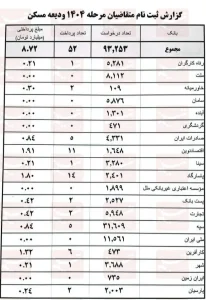 گزارش ثبت نام متقاضیان مرحله ۱۴۰۴ ودیعه مسکن
بانک تعداد درخواست تعداد پرداخت مبلغ پرداختی (میلیارد تومان)
مجموع ۹۳,۲۵۳ ۵۲ ۸.۷۲
رفاه کارگران ۵,۲۸۱ ۱ ۰.۲۱
ملت ۸,۱۱۲ ۰ ۰.۰۰
خاورمیانه ۱۰۹ ۲ ۰.۳۰
سامان ۵,۸۷۶ ۰ ۰.۰۰
آینده ۱,۳۰۱ ۰ ۰.۰۰
گردشگری ۴۷۱ ۰ ۰.۰۰
صادرات ایران ۴,۳۳۱ ۵ ۰.۸۴
اقتصادنوین ۱,۶۴۸ ۱۱ ۱.۹۱
سینا ۳,۲۸۰ ۱ ۰.۲۱
پاسارگاد ۲,۴۰۱ ۱۴ ۱.۸۰
موسسه اعتباری غیربانکی ملل ۱,۸۹۹ ۰ ۰.۰۰
پست بانک ۲,۵۲۷ ۲ ۰.۴۲
تجارت ۵,۹۴۸ ۲ ۰.۴۲
سپه ۳۱,۶۰۹ ۵ ۰.۸۴
ملی ایران ۱۱,۵۶۱ ۰ ۰.۰۰
کارآفرین ۴۷۳ ۶ ۱.۳۲
شهر ۳,۶۸۸ ۱ ۰.۲۱
ایران زمین ۷۳۵ ۰ ۰.۰۰
پارسیان ۲,۰۰۳ ۲ ۰.۲۴